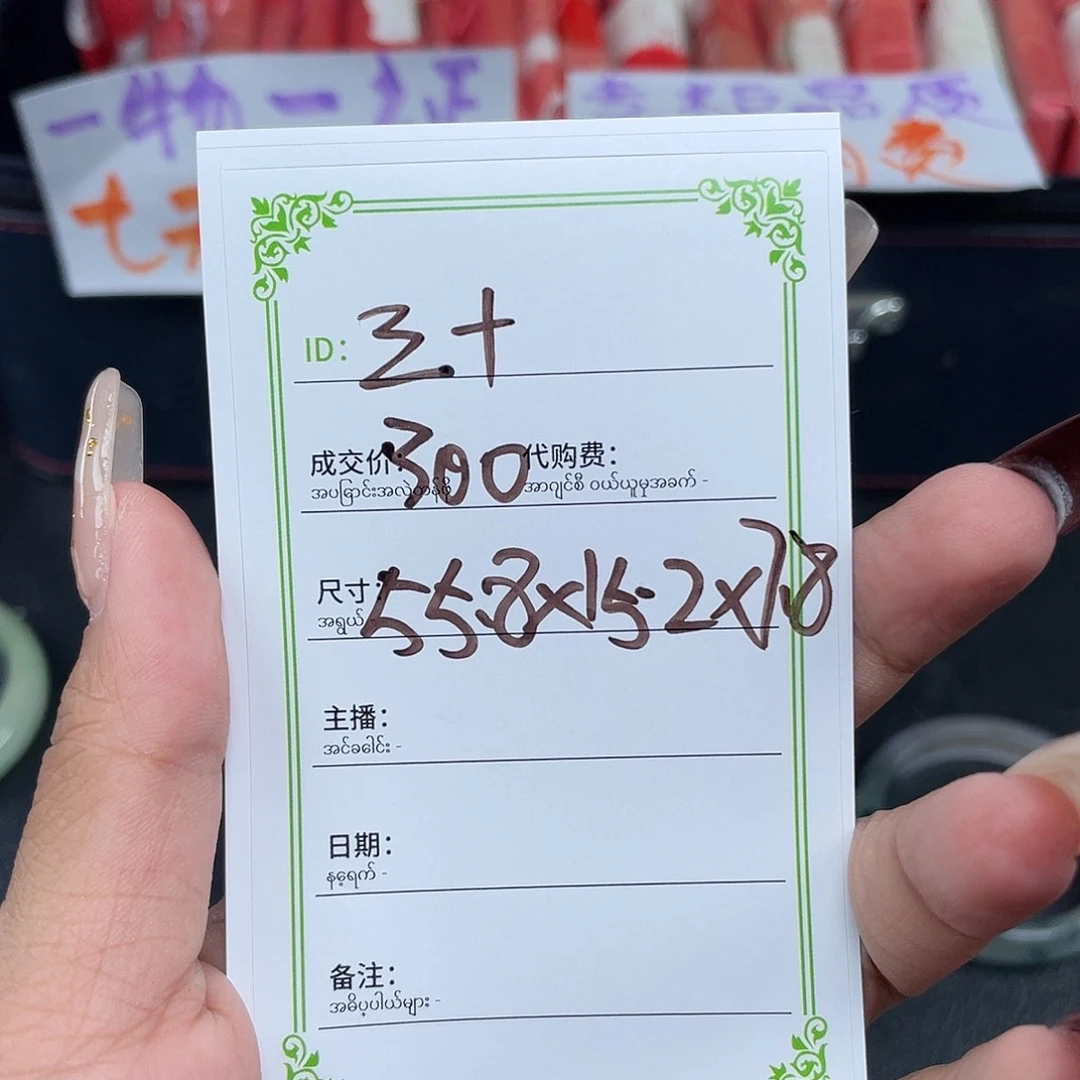 一物一证
七天
ID: 三十
成交价: 300 代购费:
အပြောင်းအလဲတန်ဖိုး အာဂျင်စီ ဝယ်ယူမှုအခက် -
尺寸: 55.8x15.2x7.8
အရွယ်
主播:
အင်ခေါင်း -
日期:
နေ့ရက် -
备注:
အဓိပ္ပါယ်များ -